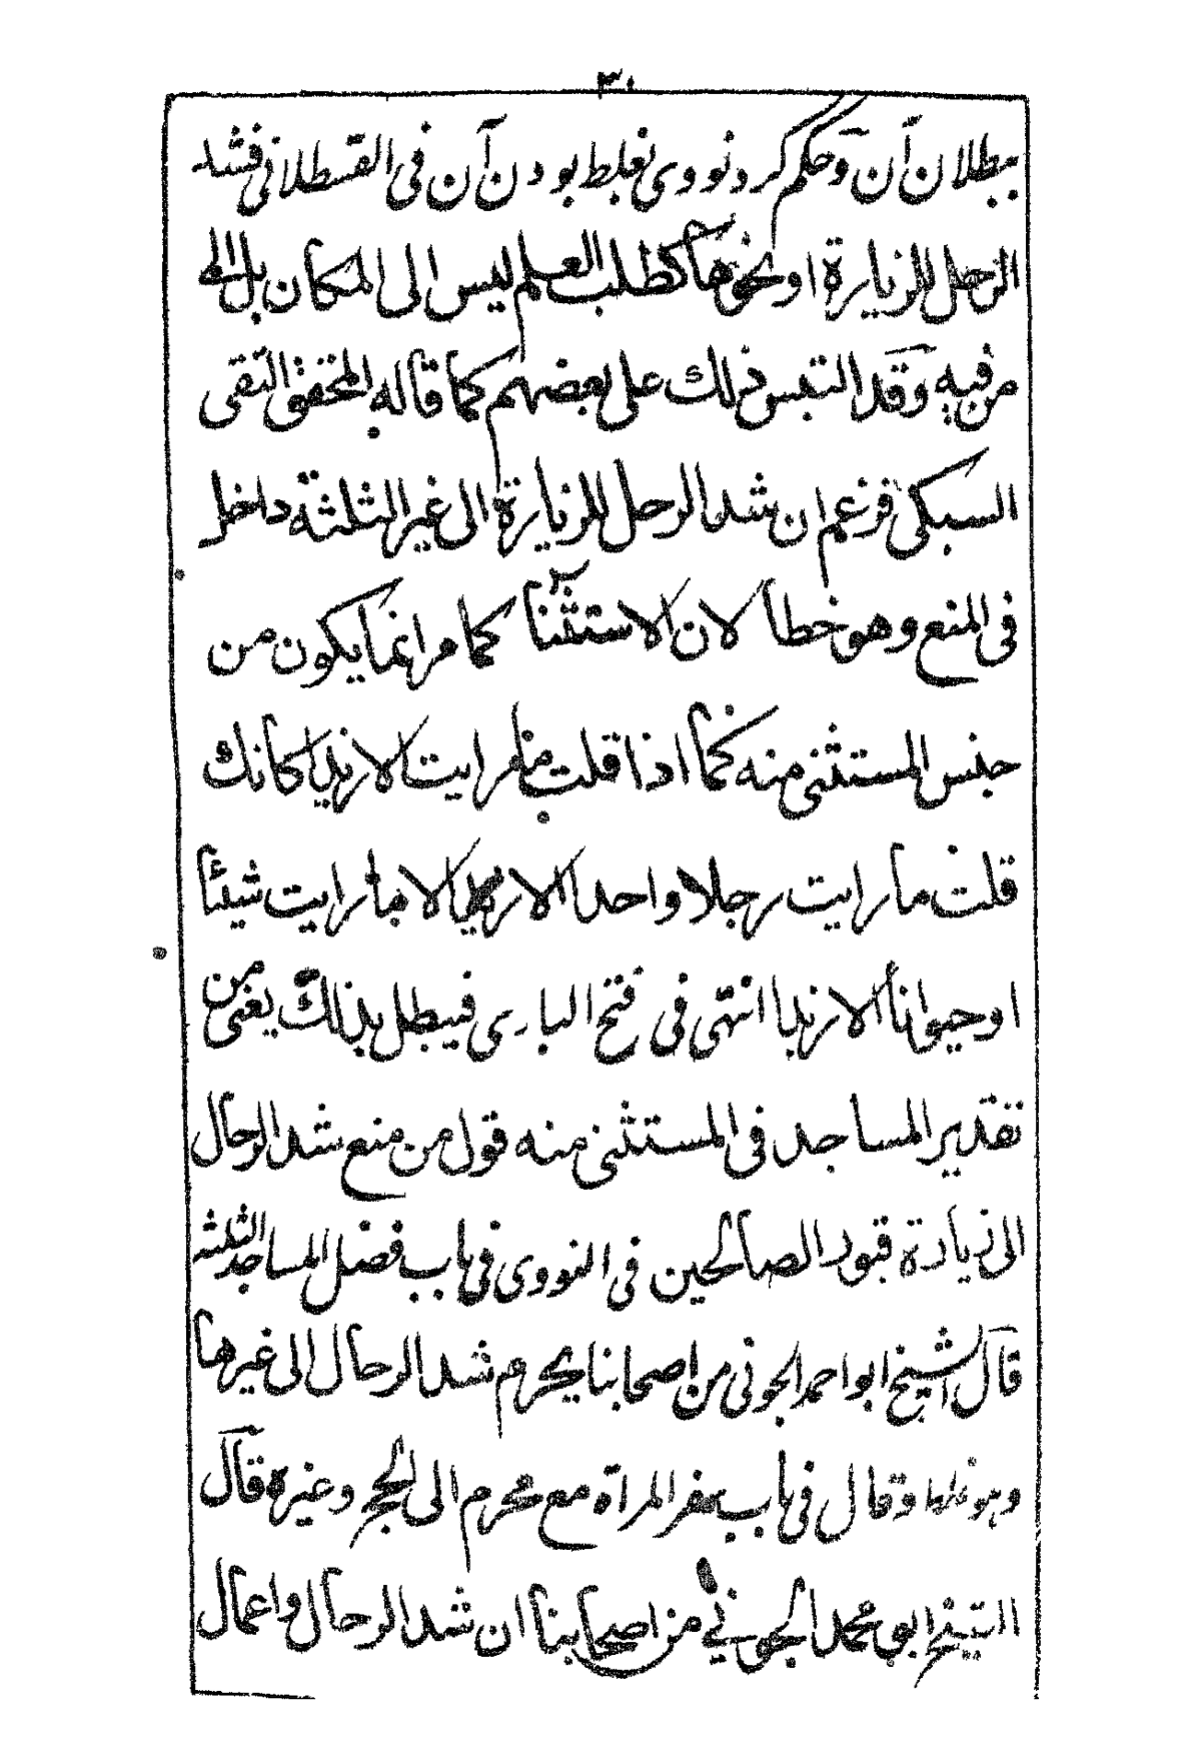 ٣٠
ببطلان آن و حکم کرد نووی بغلط بودن آن فی القسطلانی فشد
الرحل للزیارة او نحوها کطلب العلم لیس الی المکان بل الی
من فیه وقد التبس ذلك علی بعضهم کما قاله المحقق التقی
السبکی فزعم ان شد الرحل للزیارة الی غیر الثلثة داخل
فی المنع وهو خطأ لان الاستثنا کما مر انما یکون من
جنس المستثنی منه کما اذا قلت ما رایت الا زیدا کانك
قلت ما رایت رجلا واحدا الا زیدا لا ما رایت شیئا
او حیوانا الا زیدا انتهی فی فتح الباری فیبطل بذلك یعنی من
تقدیر المساجد فی المستثنی منه قول من منع شد الرحال
الی زیارة قبور الصالحین فی النووی فی باب فضل المساجد الثلثة
قال الشیخ ابو احمد الجونی من اصحابنا یحرم شد الرحال الی غیرها
وهو غلط وقال فی باب سفر المرأة مع محرم الی الحج وغیره قال
الشیخ ابو محمد الجونی من اصحابنا ان شد الرحال واعمال